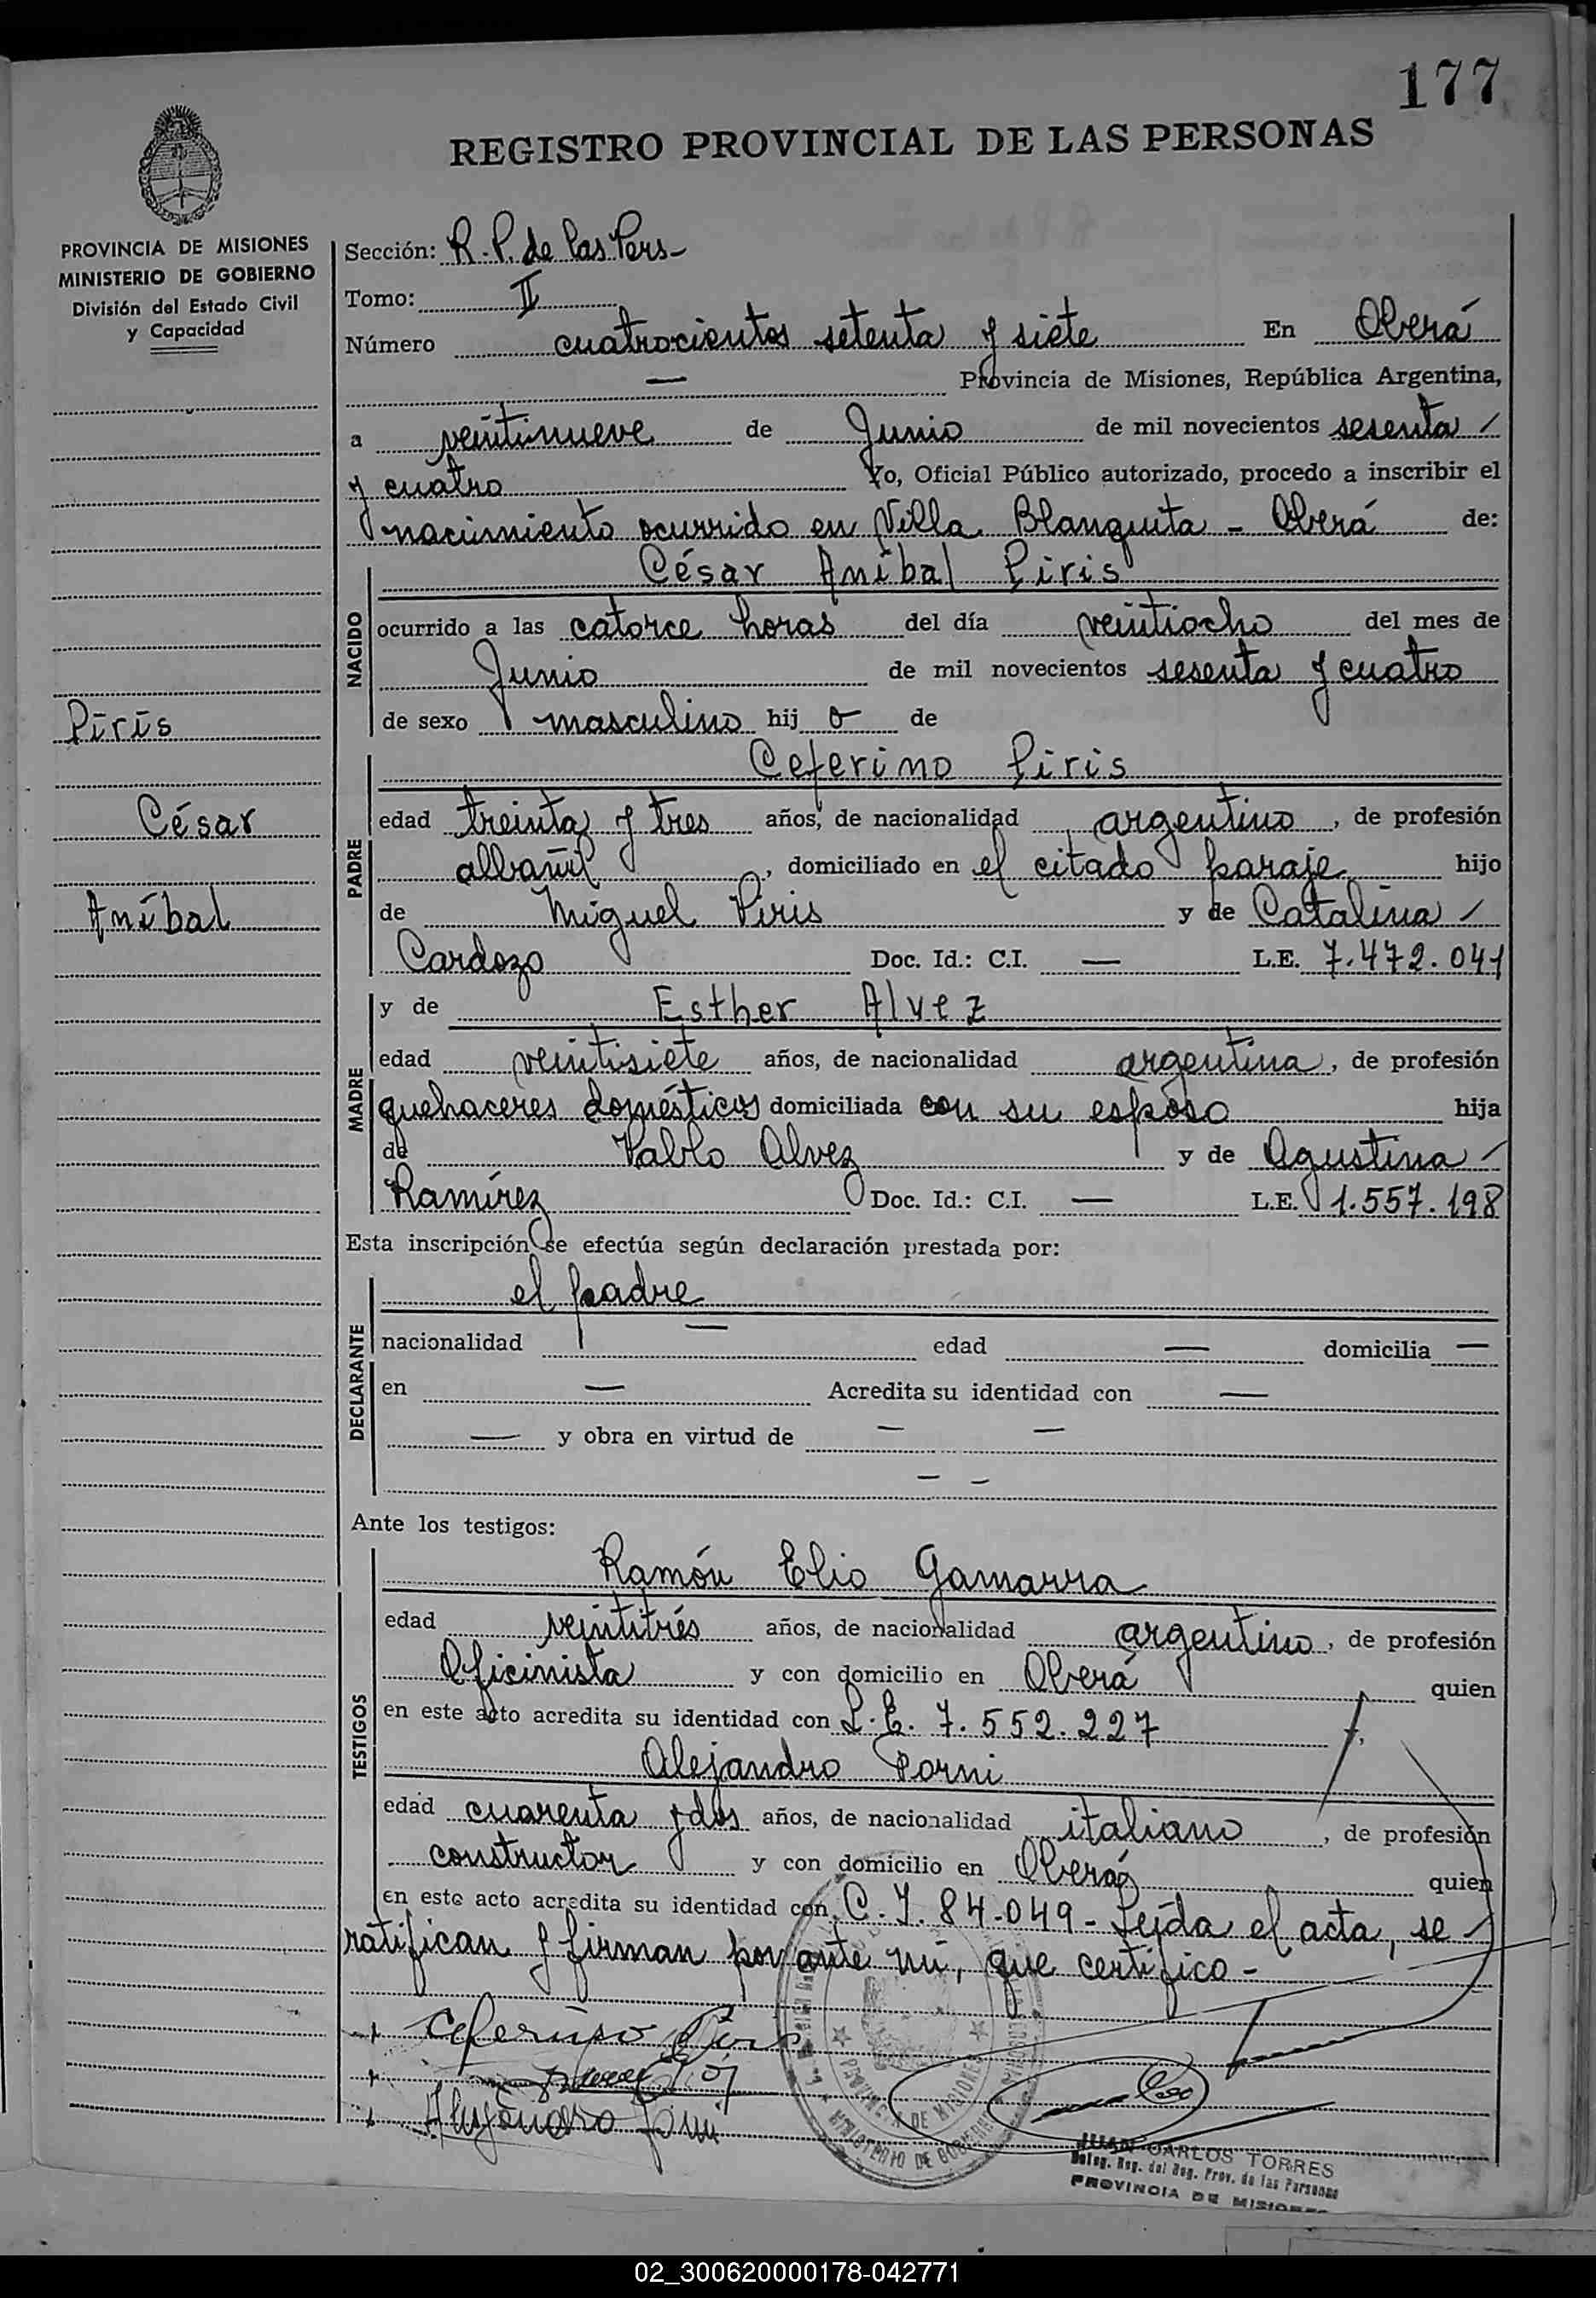 177
REGISTRO PROVINCIAL DE LAS PERSONAS
PROVINCIA DE MISIONES
MINISTERIO DE GOBIERNO
División del Estado Civil
y Capacidad
Piris
César
Aníbal
Sección: R. P. de las Pers-
Tomo: II
Número cuatrocientos setenta y siete En Oberá
— Provincia de Misiones, República Argentina,
a veintinueve de Junio de mil novecientos sesenta /
y cuatro Yo, Oficial Público autorizado, procedo a inscribir el
nacimiento ocurrido en Villa Blanquita - Oberá de:
NACIDO
César Aníbal Piris
ocurrido a las catorce horas del día veintiocho del mes de
Junio de mil novecientos sesenta y cuatro
de sexo masculino hij o de
PADRE
Ceferino Piris
edad treinta y tres años, de nacionalidad argentino, de profesión
albañil, domiciliado en el citado paraje hijo
de Miguel Piris y de Catalina /
Cardozo Doc. Id.: C.I. — L.E. 7.472.041
MADRE
y de Esther Alvez
edad veintisiete años, de nacionalidad argentina, de profesión
quehaceres domésticos domiciliada con su esposo hija
de Pablo Alvez y de Agustina /
Ramírez Doc. Id.: C.I. — L.E. 1.557.198
Esta inscripción se efectúa según declaración prestada por:
DECLARANTE
el padre
nacionalidad — edad — domicilia —
en — Acredita su identidad con —
— y obra en virtud de — —
— —
Ante los testigos:
TESTIGOS
Ramón Elio Gamarra
edad veintitrés años, de nacionalidad argentino, de profesión
Oficinista y con domicilio en Oberá quien
en este acto acredita su identidad con L.E. 7.552.227 y,
Alejandro Porni
edad cuarenta y dos años, de nacionalidad italiano, de profesión
constructor y con domicilio en Oberá quien
en este acto acredita su identidad con C.I. 84.049- Leída el acta, se
ratifican y firman por ante mí, que certifico-
Ceferino Piris
Alejandro
PROVINCIA DE MISIONES
MINISTERIO DE GOBIERNO
JUAN CARLOS TORRES
Deleg. Reg. del Reg. Prov. de las Personas
PROVINCIA DE MISIONES
02_300620000178-042771